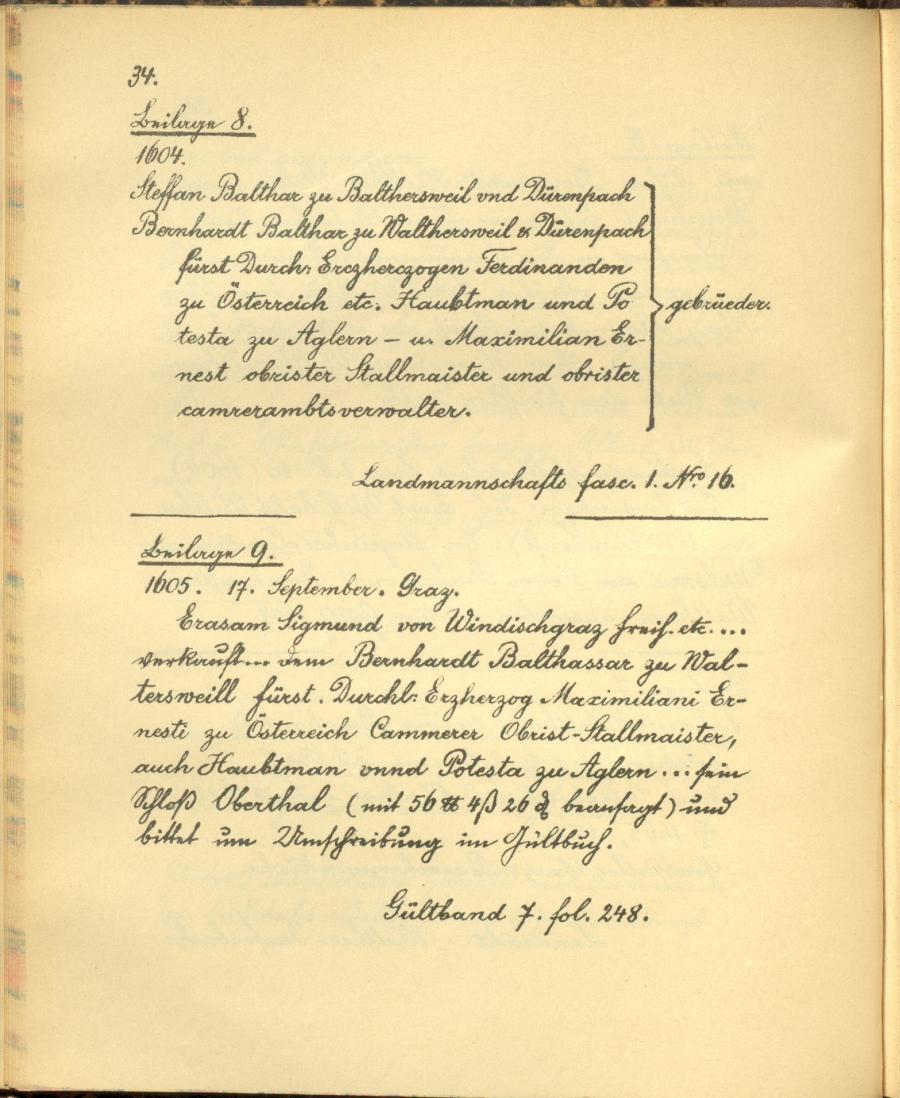 34.
Beilage 8.
1604.
Steffan Balthar zu Balthersweil vnd Dürenpach
Bernhardt Balthar zu Walthersweil & Dürenpach
fürst Durch: Erczherczogen Ferdinanden
zu Österreich etc. Haubtman und Po
testa zu Aglern – u. Maximilian Er-
nest obrister Stallmaister und obrister
camrerambtsverwalter.
gebrüeder.
Landmannschafts fasc. 1. Nro 16.
Beilage 9.
1605. 17. September. Graz.
Erasam Sigmund von Windischgraz Freih. etc....
verkauft... dem Bernhardt Balthassar zu Wal-
tersweill fürst. Durchl: Erzherzog Maximiliani Er-
nesti zu Österreich Cammerer Obrist-Stallmaister,
auch Haubtman vnnd Potesta zu Aglern... sein
Schloß Oberthal (mit 56 ℔ 4 β 26 ₰ beansagt) und
bittet um Umschreibung im Gültbuch.
Gültband 7. fol. 248.